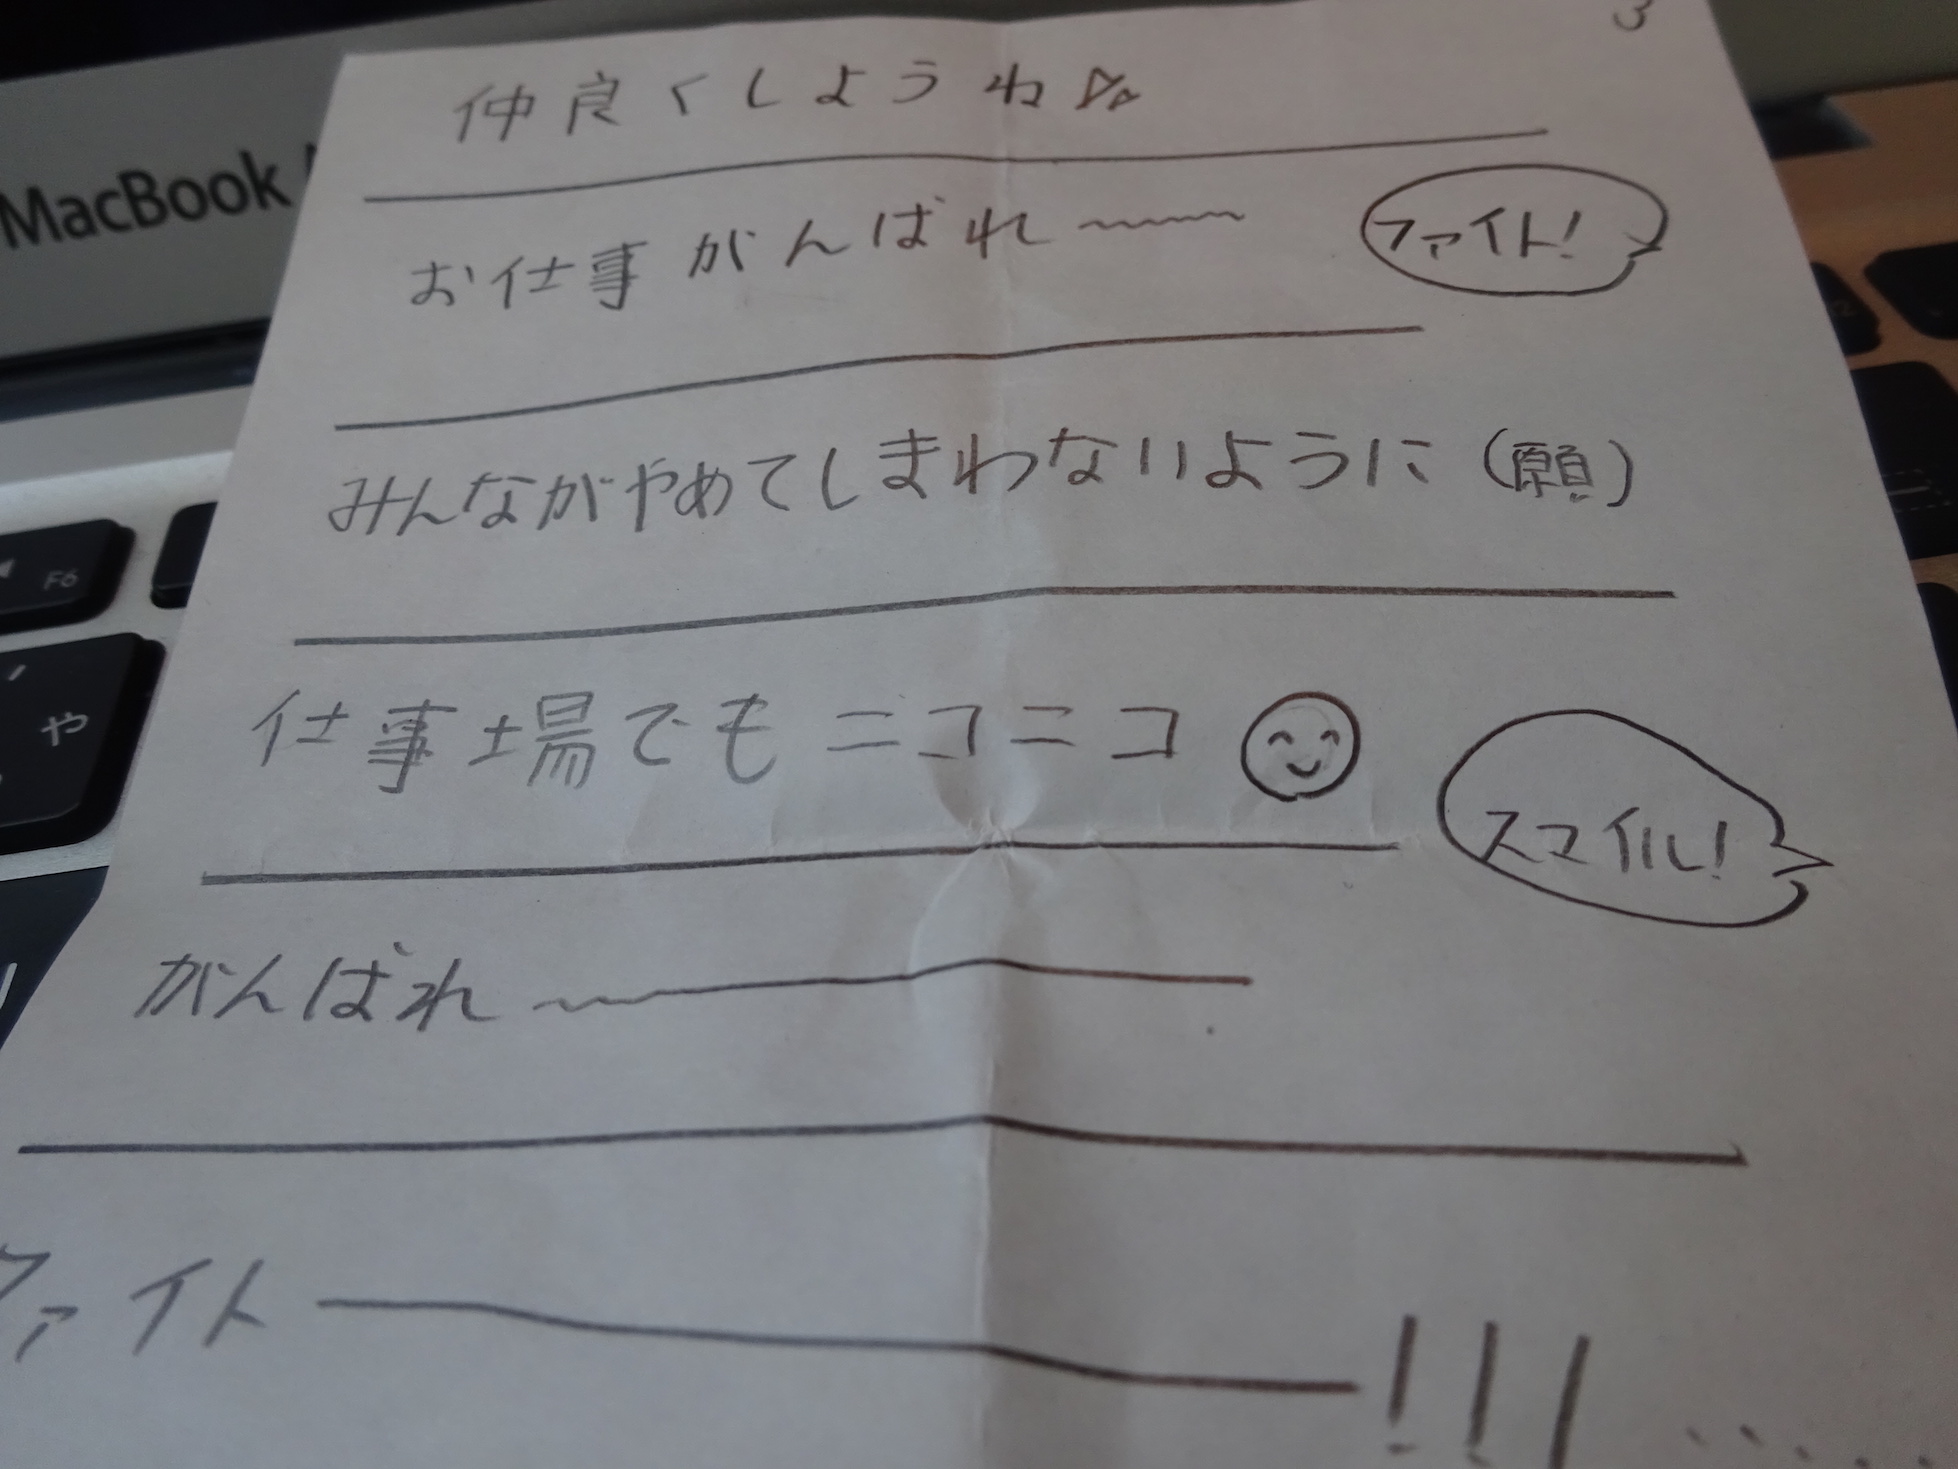 3
仲良くしようね
MacBook
お仕事がんばれ〜〜〜
ファイト!
みんながやめてしまわないように(願)
F6
や
仕事場でもニコニコ
スマイル!
がんばれ〜ー
ファイトー!!!.....